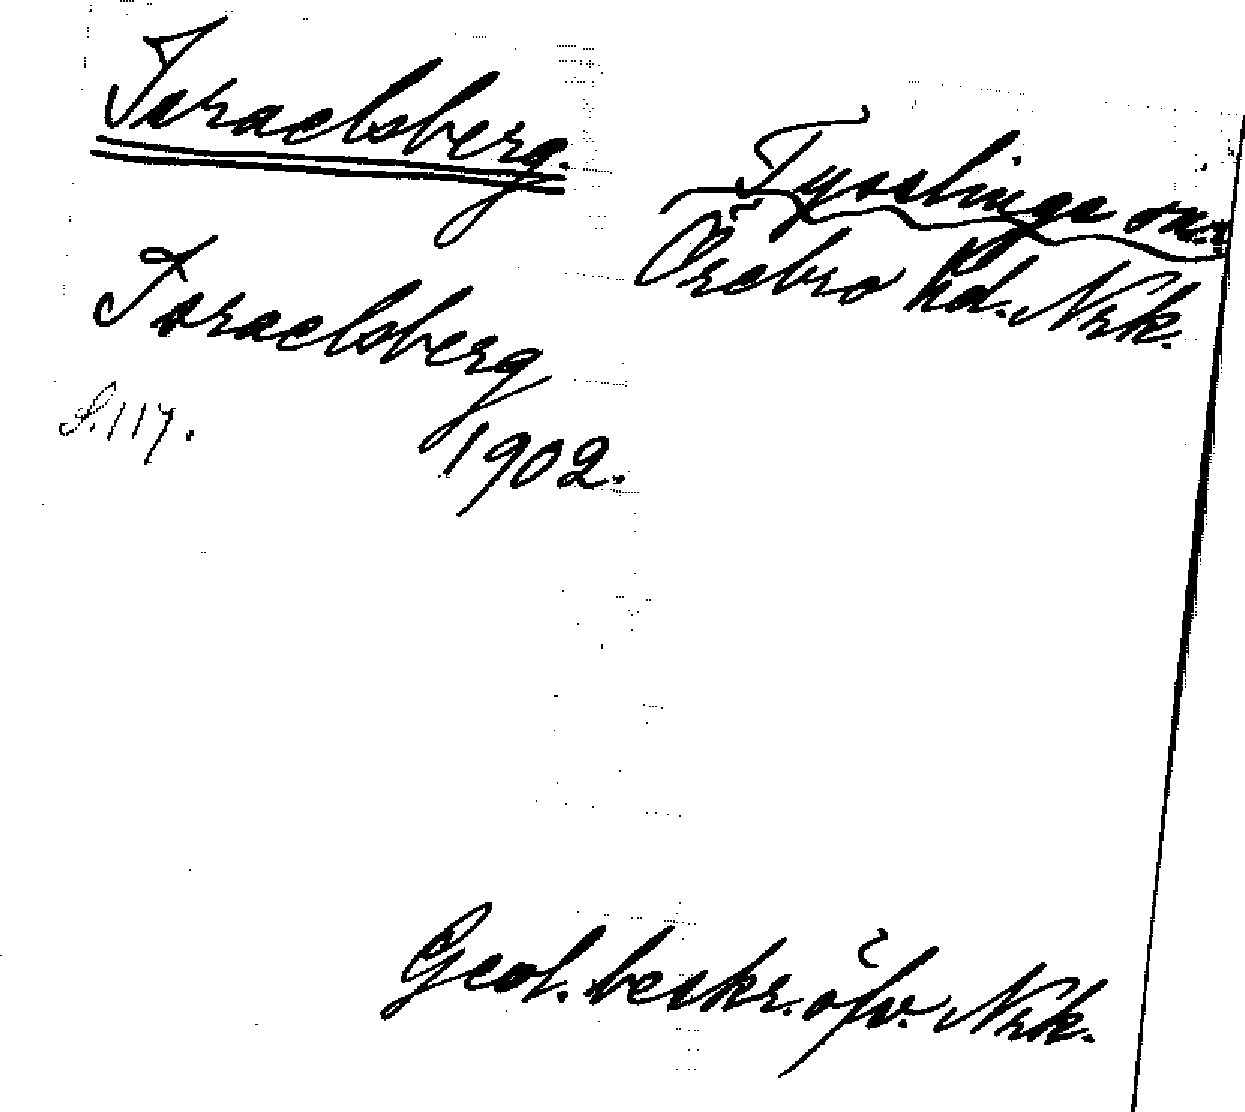 Israelsberg.
Tysslinge sn.
Örebro hd. Nrk.
Israelsberg
S. 117.
1902.
Geol. beskr. öfv. Nrk.